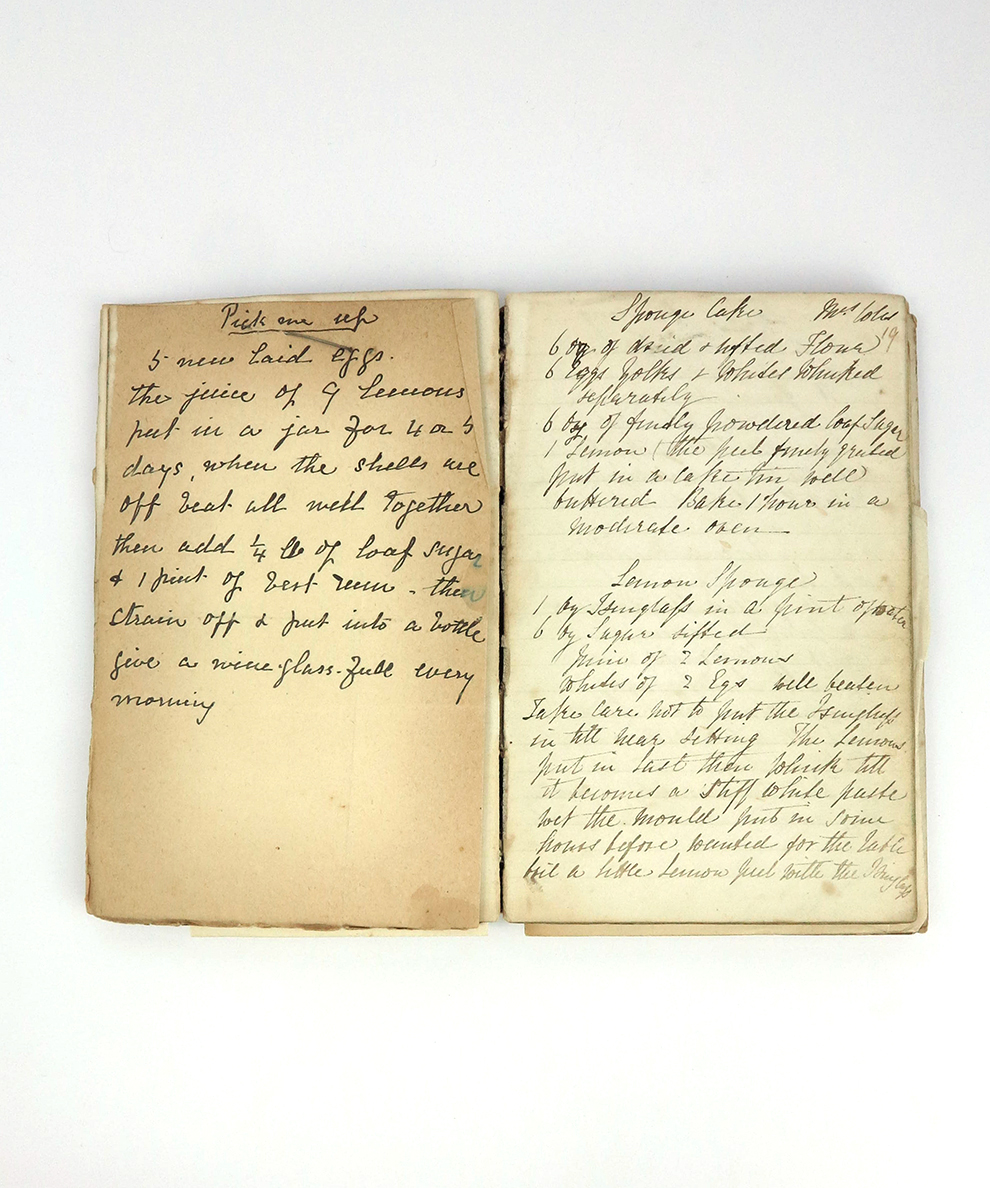 Pick me up
5 new laid eggs.
the juice of 9 lemons
put in a jar for 4 or 5
days, when the shells are
off beat all well together
then add ¼ lb of loaf sugar
& 1 pint of best rum - then
strain off & put into a bottle
give a wine-glass-full every
morning
Sponge Cake Mrs
19
6 oz of dried & sifted Flour
6 Eggs Yolks & Whites Whisked
separately
6 oz of finely powdered loaf Sugar
1 Lemon (the peel finely grated
put in a cake tin well
buttered Bake 1 hour in a
moderate oven
Lemon Sponge
1 oz Isinglass in a pint of water
6 oz Sugar sifted
Juice of 2 Lemons
Whites of 2 Eggs well beaten
Take care not to put the Isinglass
in till near setting The Lemons
put in last then Whisk till
it becomes a stiff white paste
wet the mould put in some
hours before wanted for the table
boil a little Lemon peel with the Isinglass